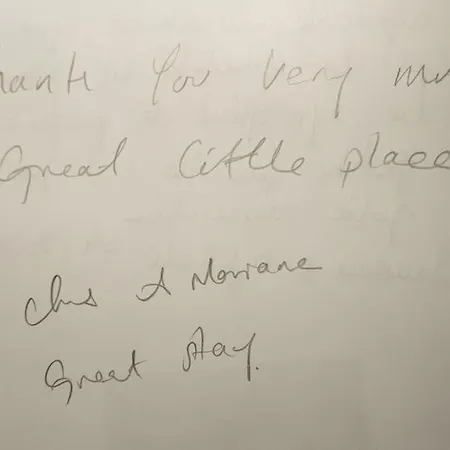 hank You Very mu
Great Little place
Chris & Moriane
Great Stay.